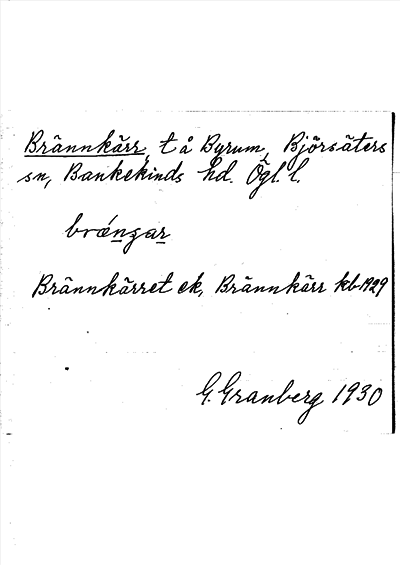 Brännkärr, t å Byrum, Björsäters
sn, Bankekinds hd. Ögl. l.
brǽnʒar
Brännkärret ek, Brännkärr kb 1929
G. Granberg 1930